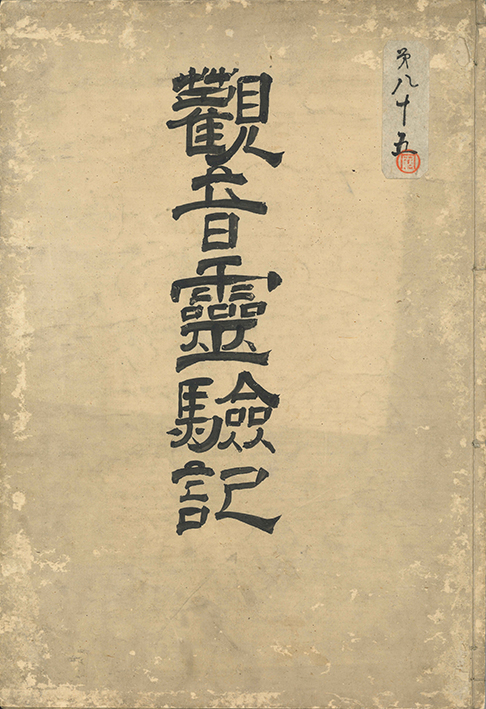 第八十五
觀音靈驗記